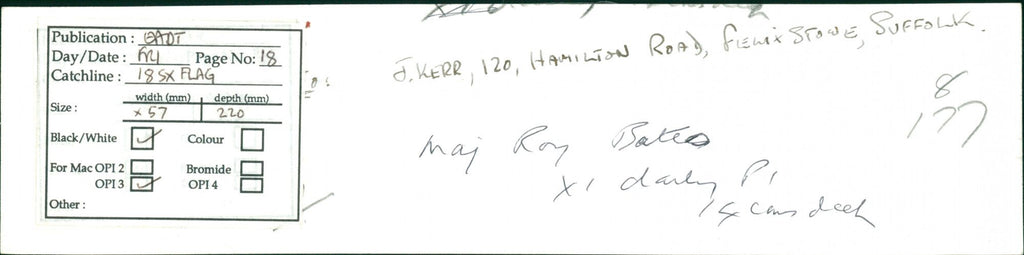 Publication : EADT
Day/Date : FRI Page No: 18
Catchline : 18 SX FLAG
width (mm) depth (mm)
Size : x 57 220
Black/White Colour
For Mac OPI 2 Bromide
OPI 3 OPI 4
Other :
J. KERR, 120, HAMILTON ROAD, FELIXSTOWE, SUFFOLK.
8
177
Maj Roy Bates
X1 P1